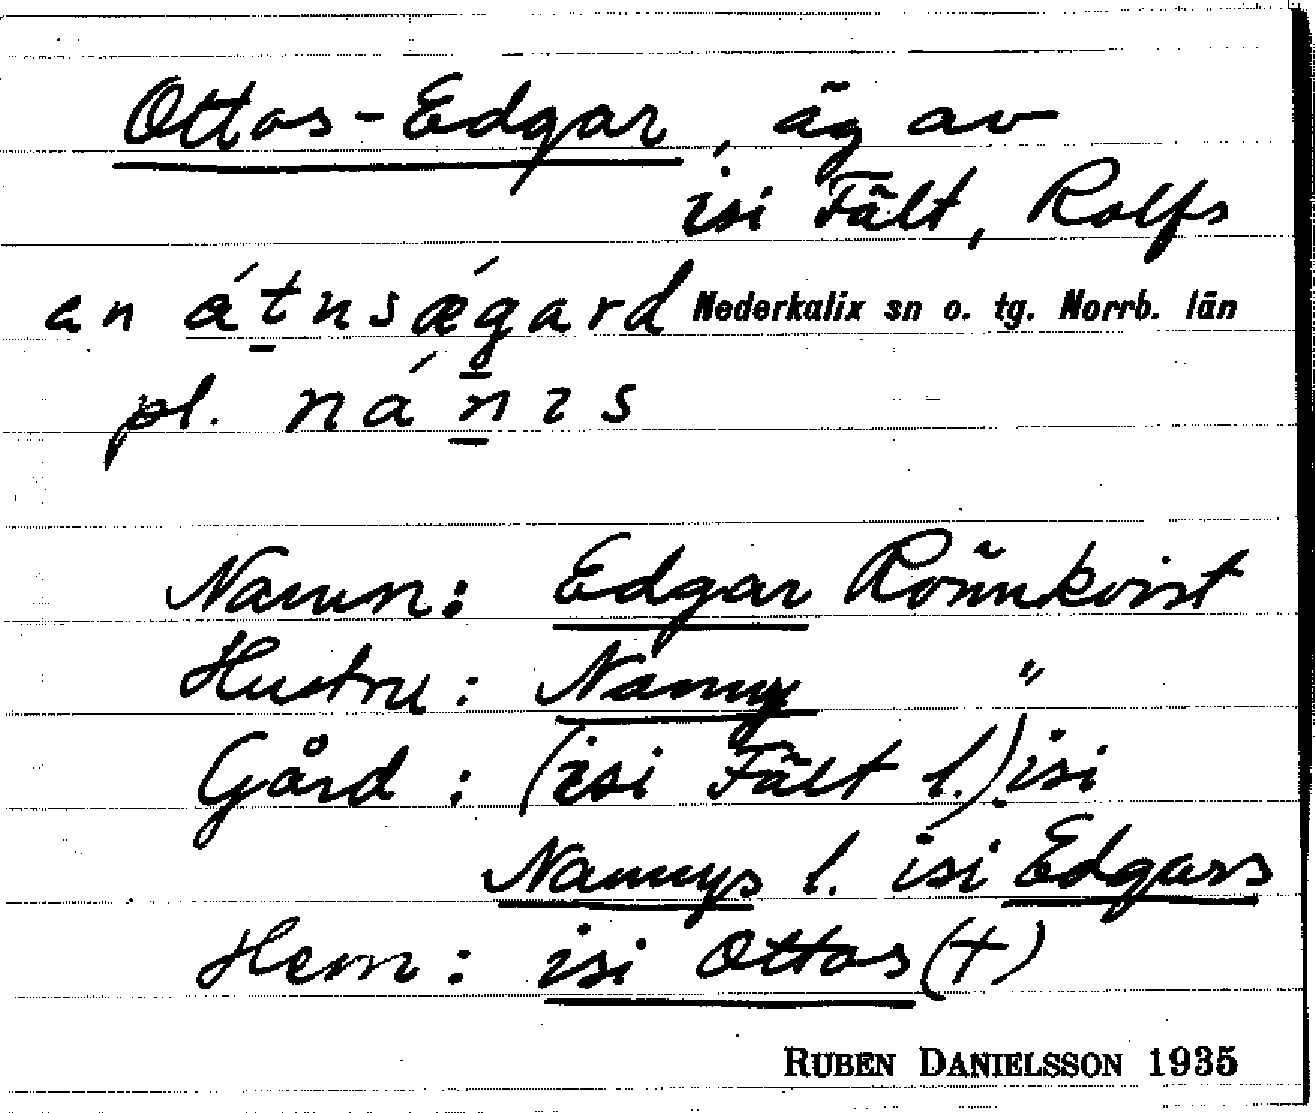 Ottos-Edgar, äg av
isi Fält, Rolfs
an átnsǽgard Nederkalix sn o. tg. Norrb. län
pl. nánɩs
Namn: Edgar Rönnkvist
Hustru: Nanny "
Gård: (isi Fält l.) isi
Nannys l. isi Edgars
Hem: isi Ottos (+)
RUBEN DANIELSSON 1935